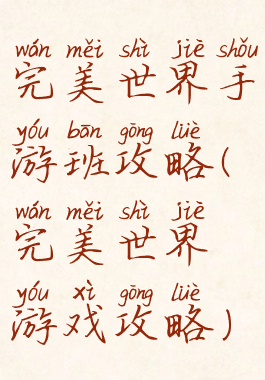 wán měi shì jiè shǒu
完美世界手
yóu bān gōng lüè
游班攻略(
wán měi shì jiè
完美世界
yóu xì gōng lüè
游戏攻略)